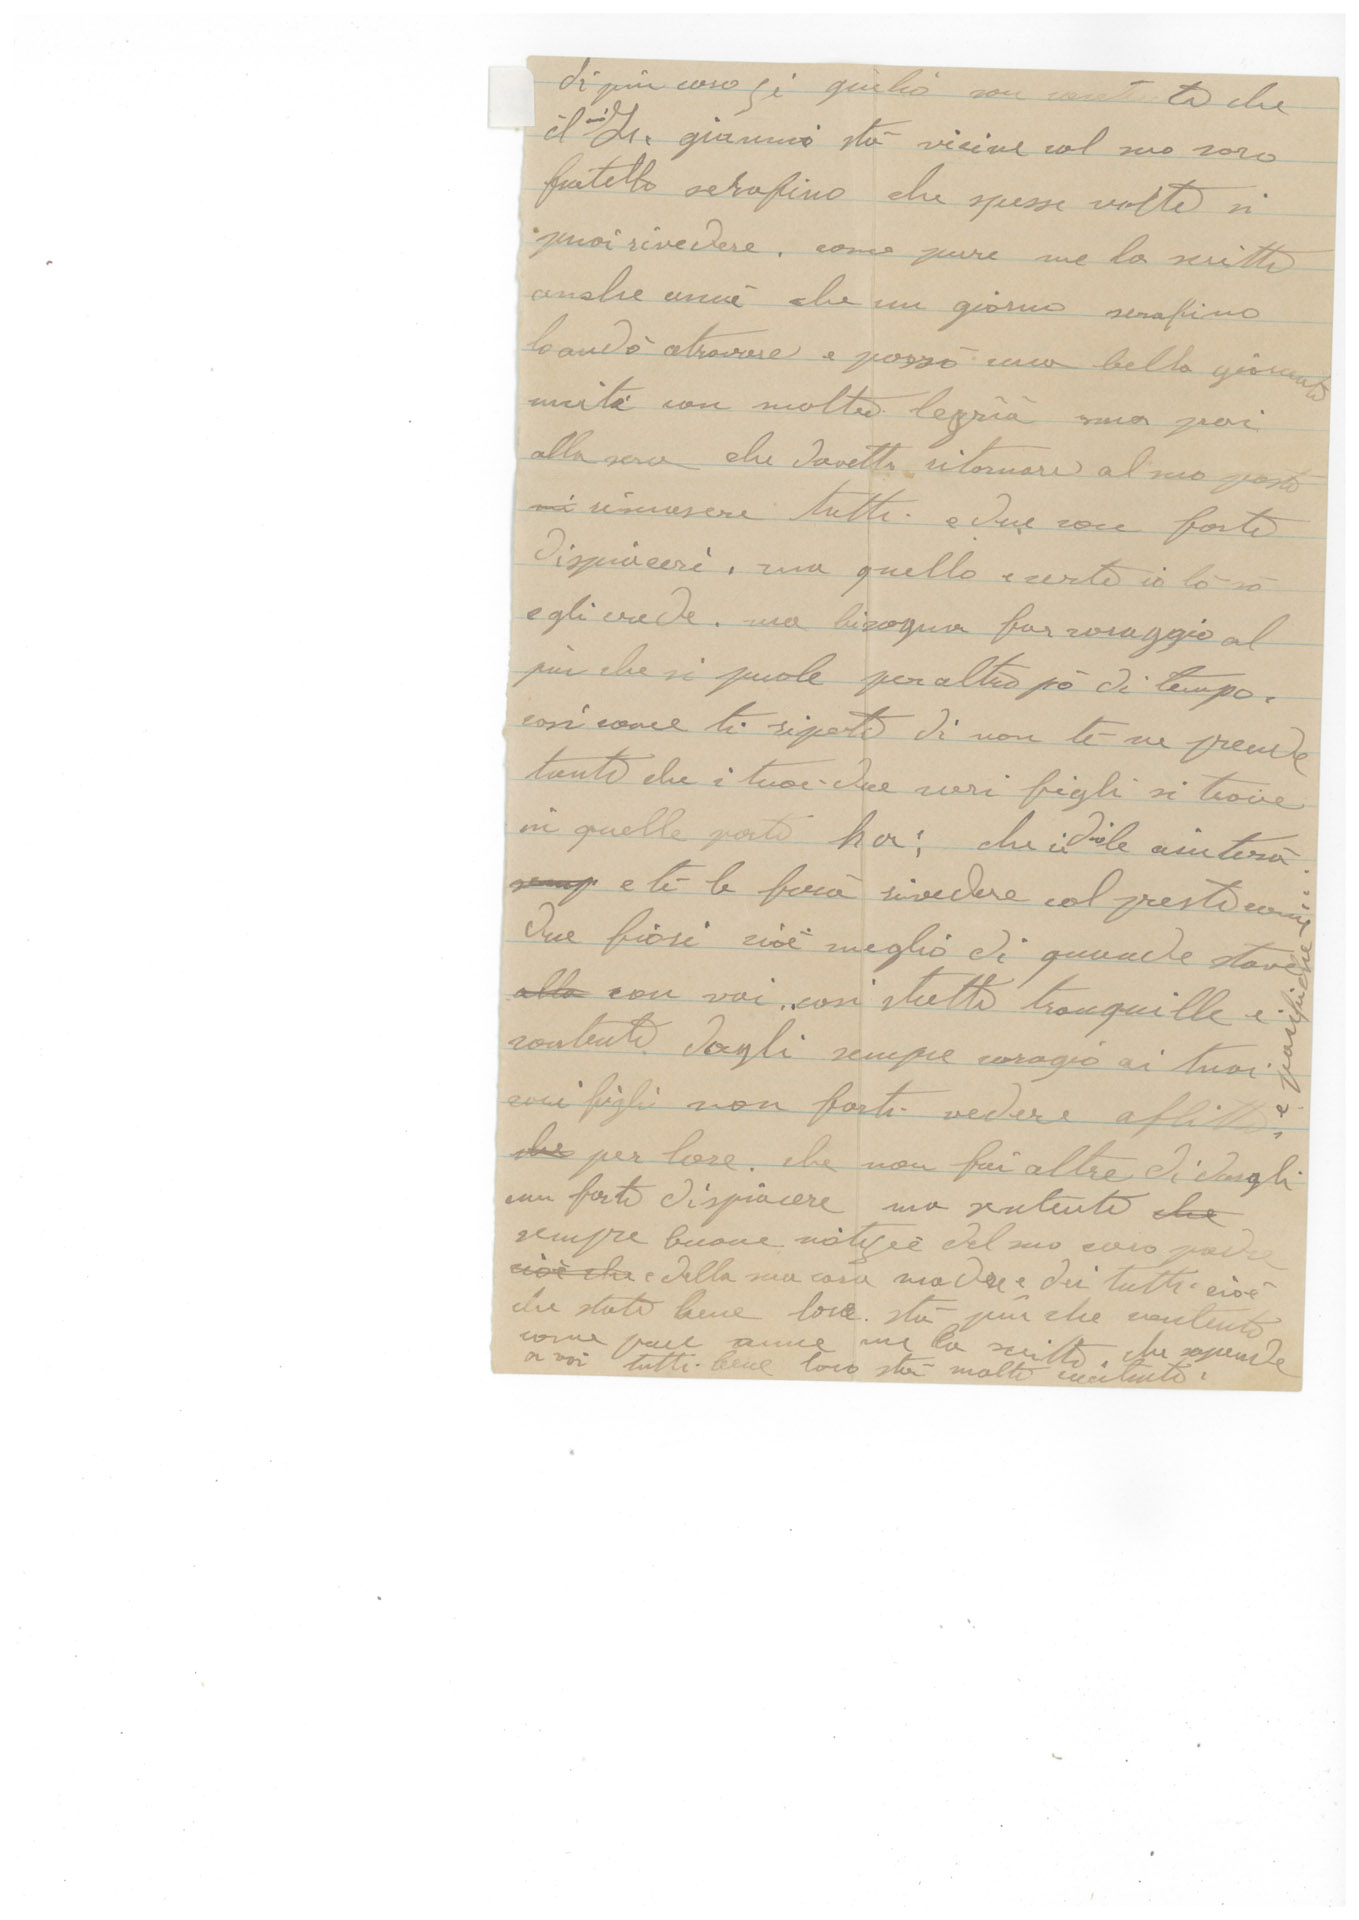 di più caro zi giulio son contento che
il mio Fr. gianni stà vicine col suo caro
fratello serafino che spesse volte si
puoi rivedere. come pure me la scritto
anche ammè che un giorno serafino
lo andò atrovare e passò una bella giornata
unita con molta legria ma poi
alla sera che dovette ritornare al suo posto
mi rimasere tutti e due con forte
dispiacere, ma quello e certo io lo sò
egli crede. ma bisogna far coraggio al
più che si puole per altro pò di tempo.
così come ti ripeto di non te ne prende
tanto che i tuoi due cari figli si trove
in quelle parte ha; che idio le aiuterà
semp e te le farà rivedere col presto come
due fiori cioè meglio di quande stave
alla con voi. così statte tranquille e
contento dagli sempre coragio ai tuoi
cari figli non farti vedere aflitto
che per lore. che non fai altre di dargli
un forte dispiacere ma sentento che
sempre buone notizie del suo caro padre
cioè che e della sua cara madre e dei tutti cioè
che state bene lore stà più che contento
come pure amme me la scritto, che sapende
a voi tutti bene loro stà molto contento.
e pasifiche